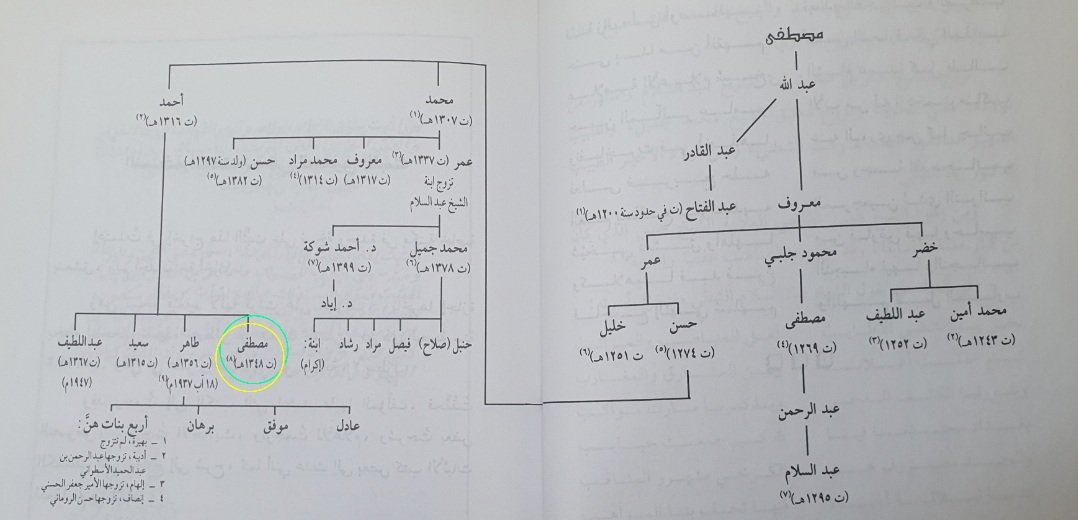 مصطفى
عبد الله
عبد القادر
عبد الفتاح (ت في حدود سنة ١٢٠٠هـ)(١)
معروف
خضر
محمود جلبي
عمر
محمد أمين
(ت ١٢٤٣هـ)(٢)
عبد اللطيف
(ت ١٢٥٢هـ)(٣)
مصطفى
(ت ١٢٦٩هـ)(٤)
حسن
(ت ١٢٧٤هـ)(٥)
خليل
(ت ١٢٥١هـ)(٦)
عبد الرحمن
عبد السلام
(ت ١٢٩٥هـ)(٧)
محمد
(ت ١٣٠٧هـ)(١)
أحمد
(ت ١٣١٦هـ)(٢)
عمر (ت ١٣٣٧هـ)(٣)
تزوج ابنة
الشيخ عبد السلام
معروف
(ت ١٣١٧هـ)
محمد مراد
(ت ١٣١٤)(٤)
حسن (ولد سنة ١٢٩٧هـ)
(ت ١٣٨٢هـ)(٥)
محمد جميل
(ت ١٣٧٨هـ)(٦)
د. أحمد شوكة
(ت ١٣٩٩هـ)(٧)
د. إياد
حنبل (صلاح)
فيصل
مراد
رشاد
ابنة:
(إكرام)
مصطفى
(ت ١٣٤٨هـ)(٨)
طاهر
(ت ١٣٥٦هـ)
١٨ آب ١٩٣٧م)(٩)
سعيد
(ت ١٣١٥هـ)
عبد اللطيف
(ت ١٣٦٧هـ)
(١٩٤٧م)
عادل
موفق
برهان
أربع بنات هنَّ:
١ ـ بهيرة، لم تتزوج
٢ ـ أديبة، تزوجها عبد الرحمن بن
عبد الحميد الأسطواني
٣ ـ إلهام، تزوجها الأمير جعفر الحسني
٤ ـ إنصاف، تزوجها حسن الروماني